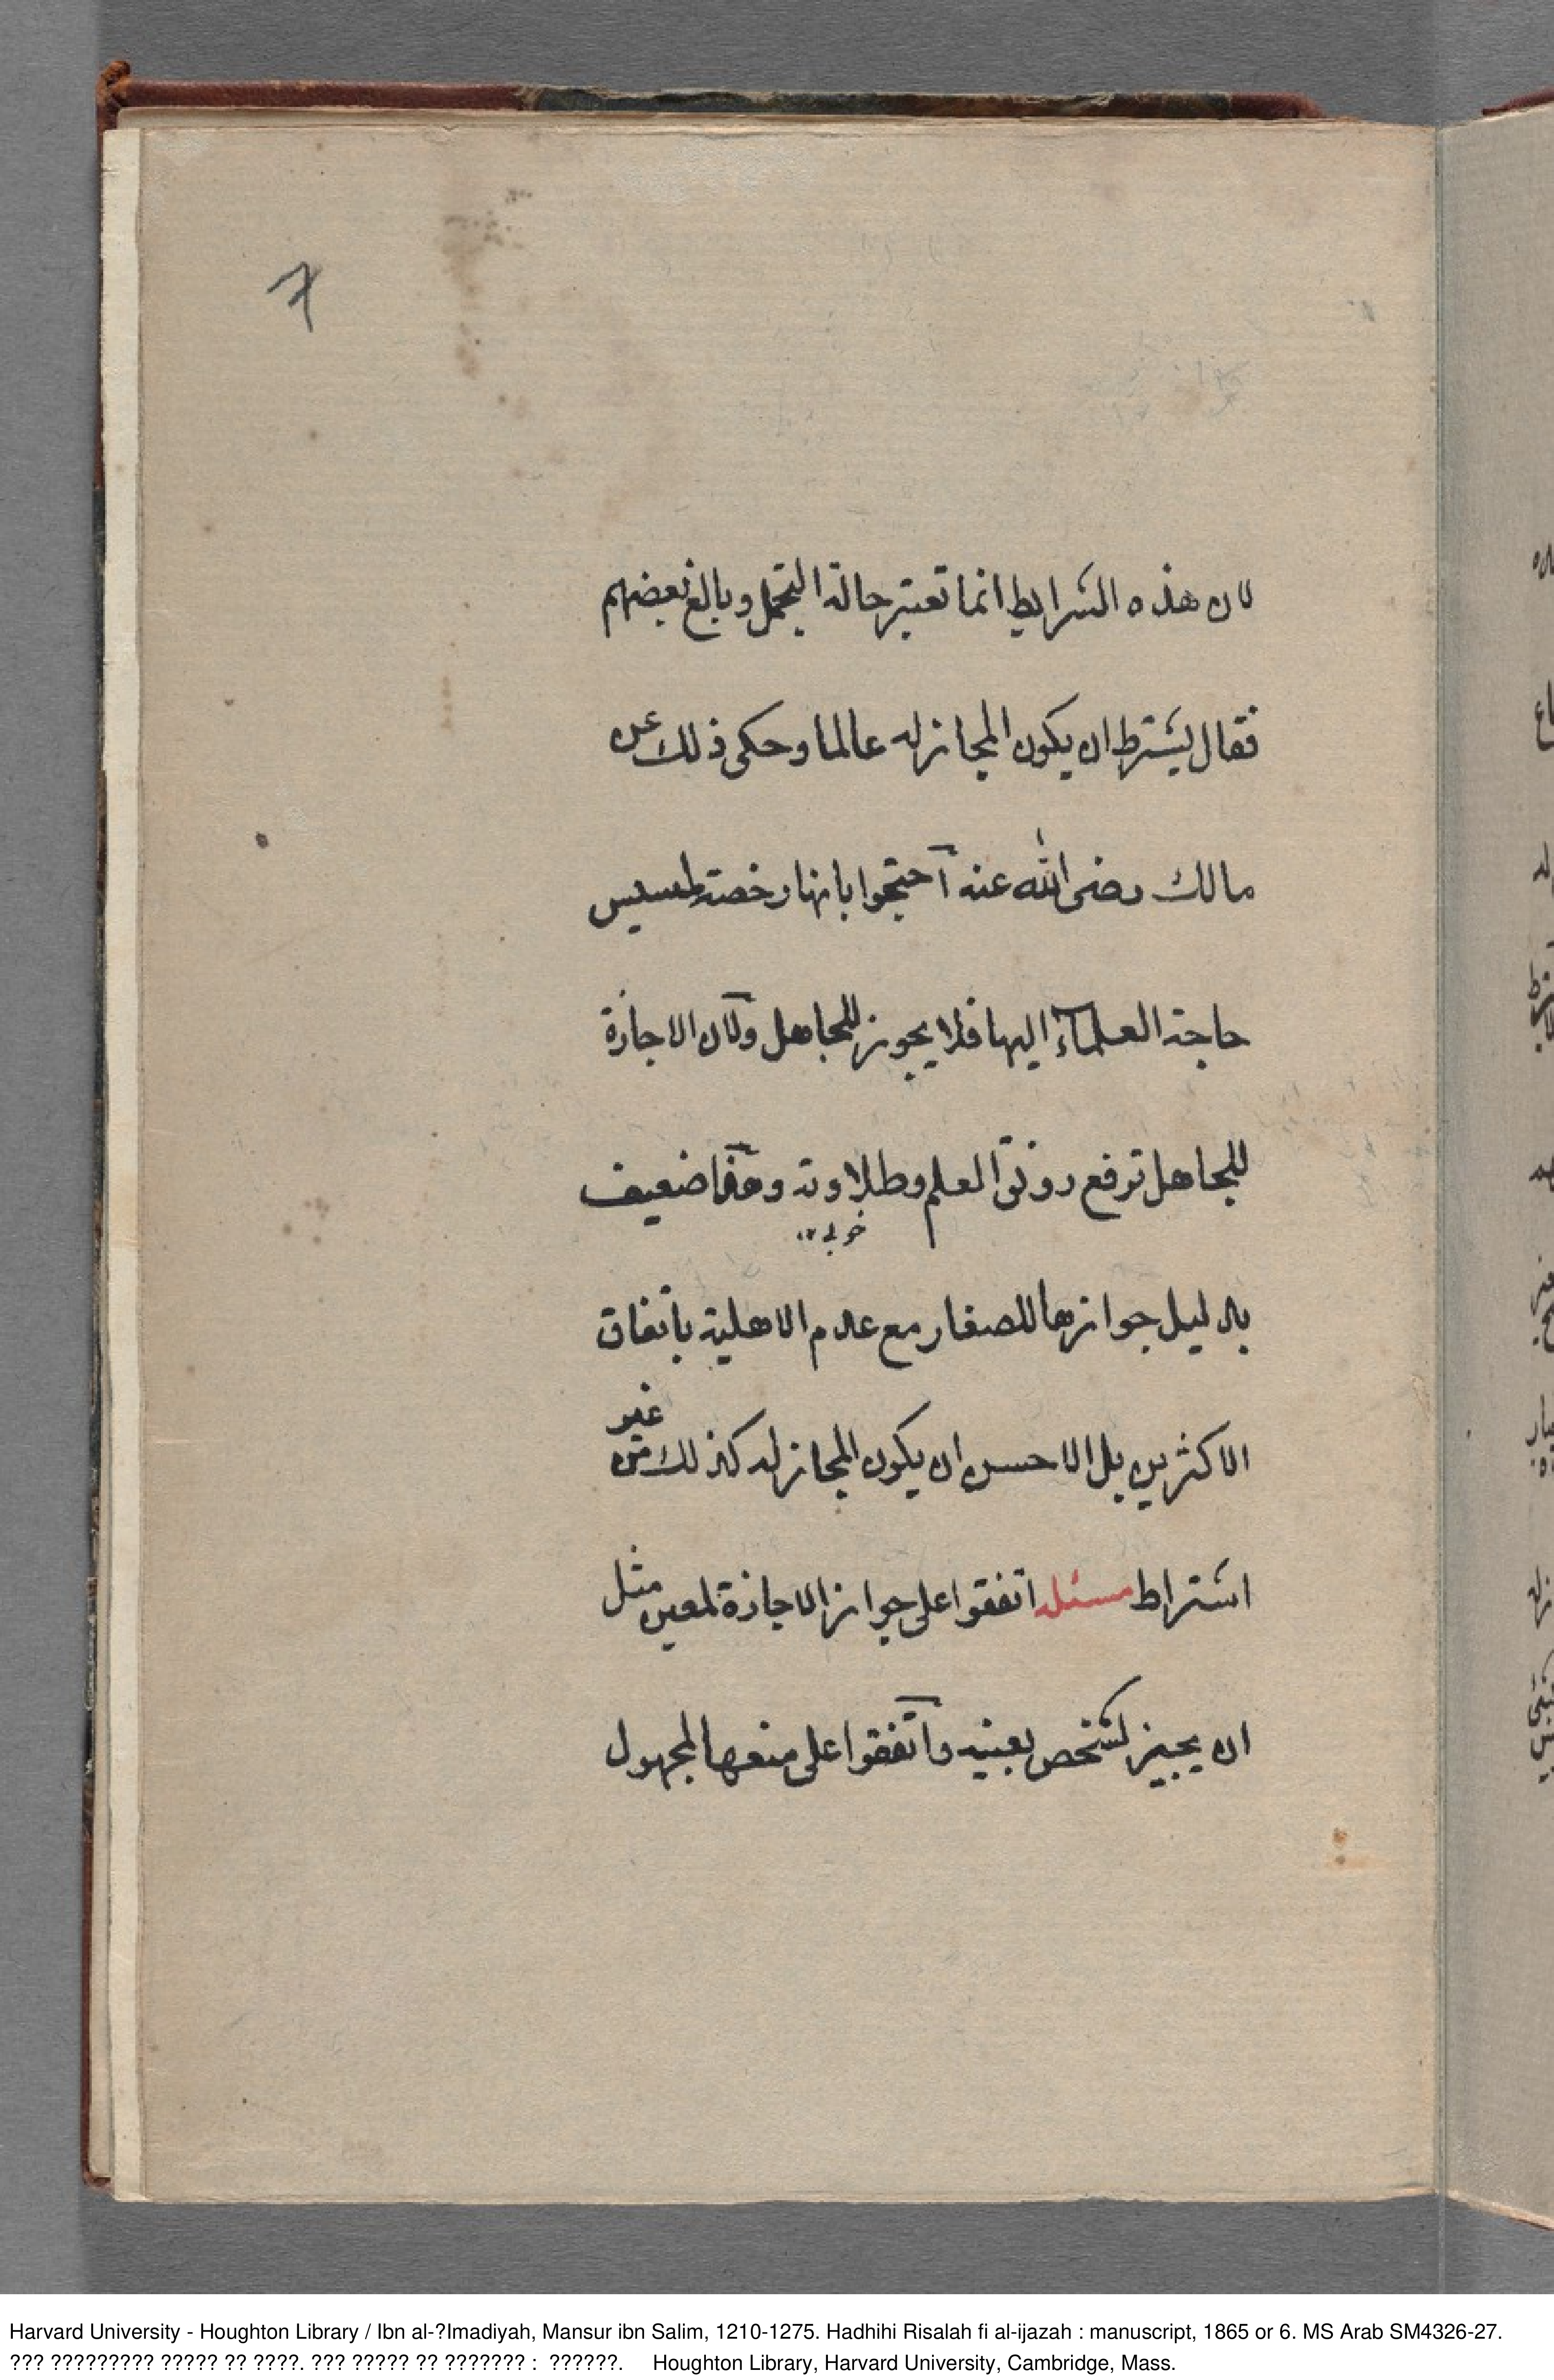 7
لان هذه الشرايط انما تعتبر حالة التحمل وبالغ بعضهم
فقال يشترط ان يكون المجاز له عالما وحكى ذلك عن
مالك رضى الله عنه آحتجوا بانها رخصة لمسيس
حاجة العلمآء اليها فلا يجوز للجاهل ولآن الاجازة
للجاهل ترفع رونق العلم وطلاوته وهذا ضعيف
خوبى
بدليل جوازها للصغار مع عدم الاهلية باتفاق
الاكثرين بل الاحسن ان يكون المجاز له كذلك من غير
اشتراط مسئله اتفقوا على جواز الاجازة لمعين مثل
ان يجيز لشخص بعينه وآتفقوا على منعها لمجهول
Harvard University - Houghton Library / Ibn al-?Imadiyah, Mansur ibn Salim, 1210-1275. Hadhihi Risalah fi al-ijazah : manuscript, 1865 or 6. MS Arab SM4326-27.
??? ????????? ????? ?? ????. ??? ????? ?? ??????? : ??????. Houghton Library, Harvard University, Cambridge, Mass.